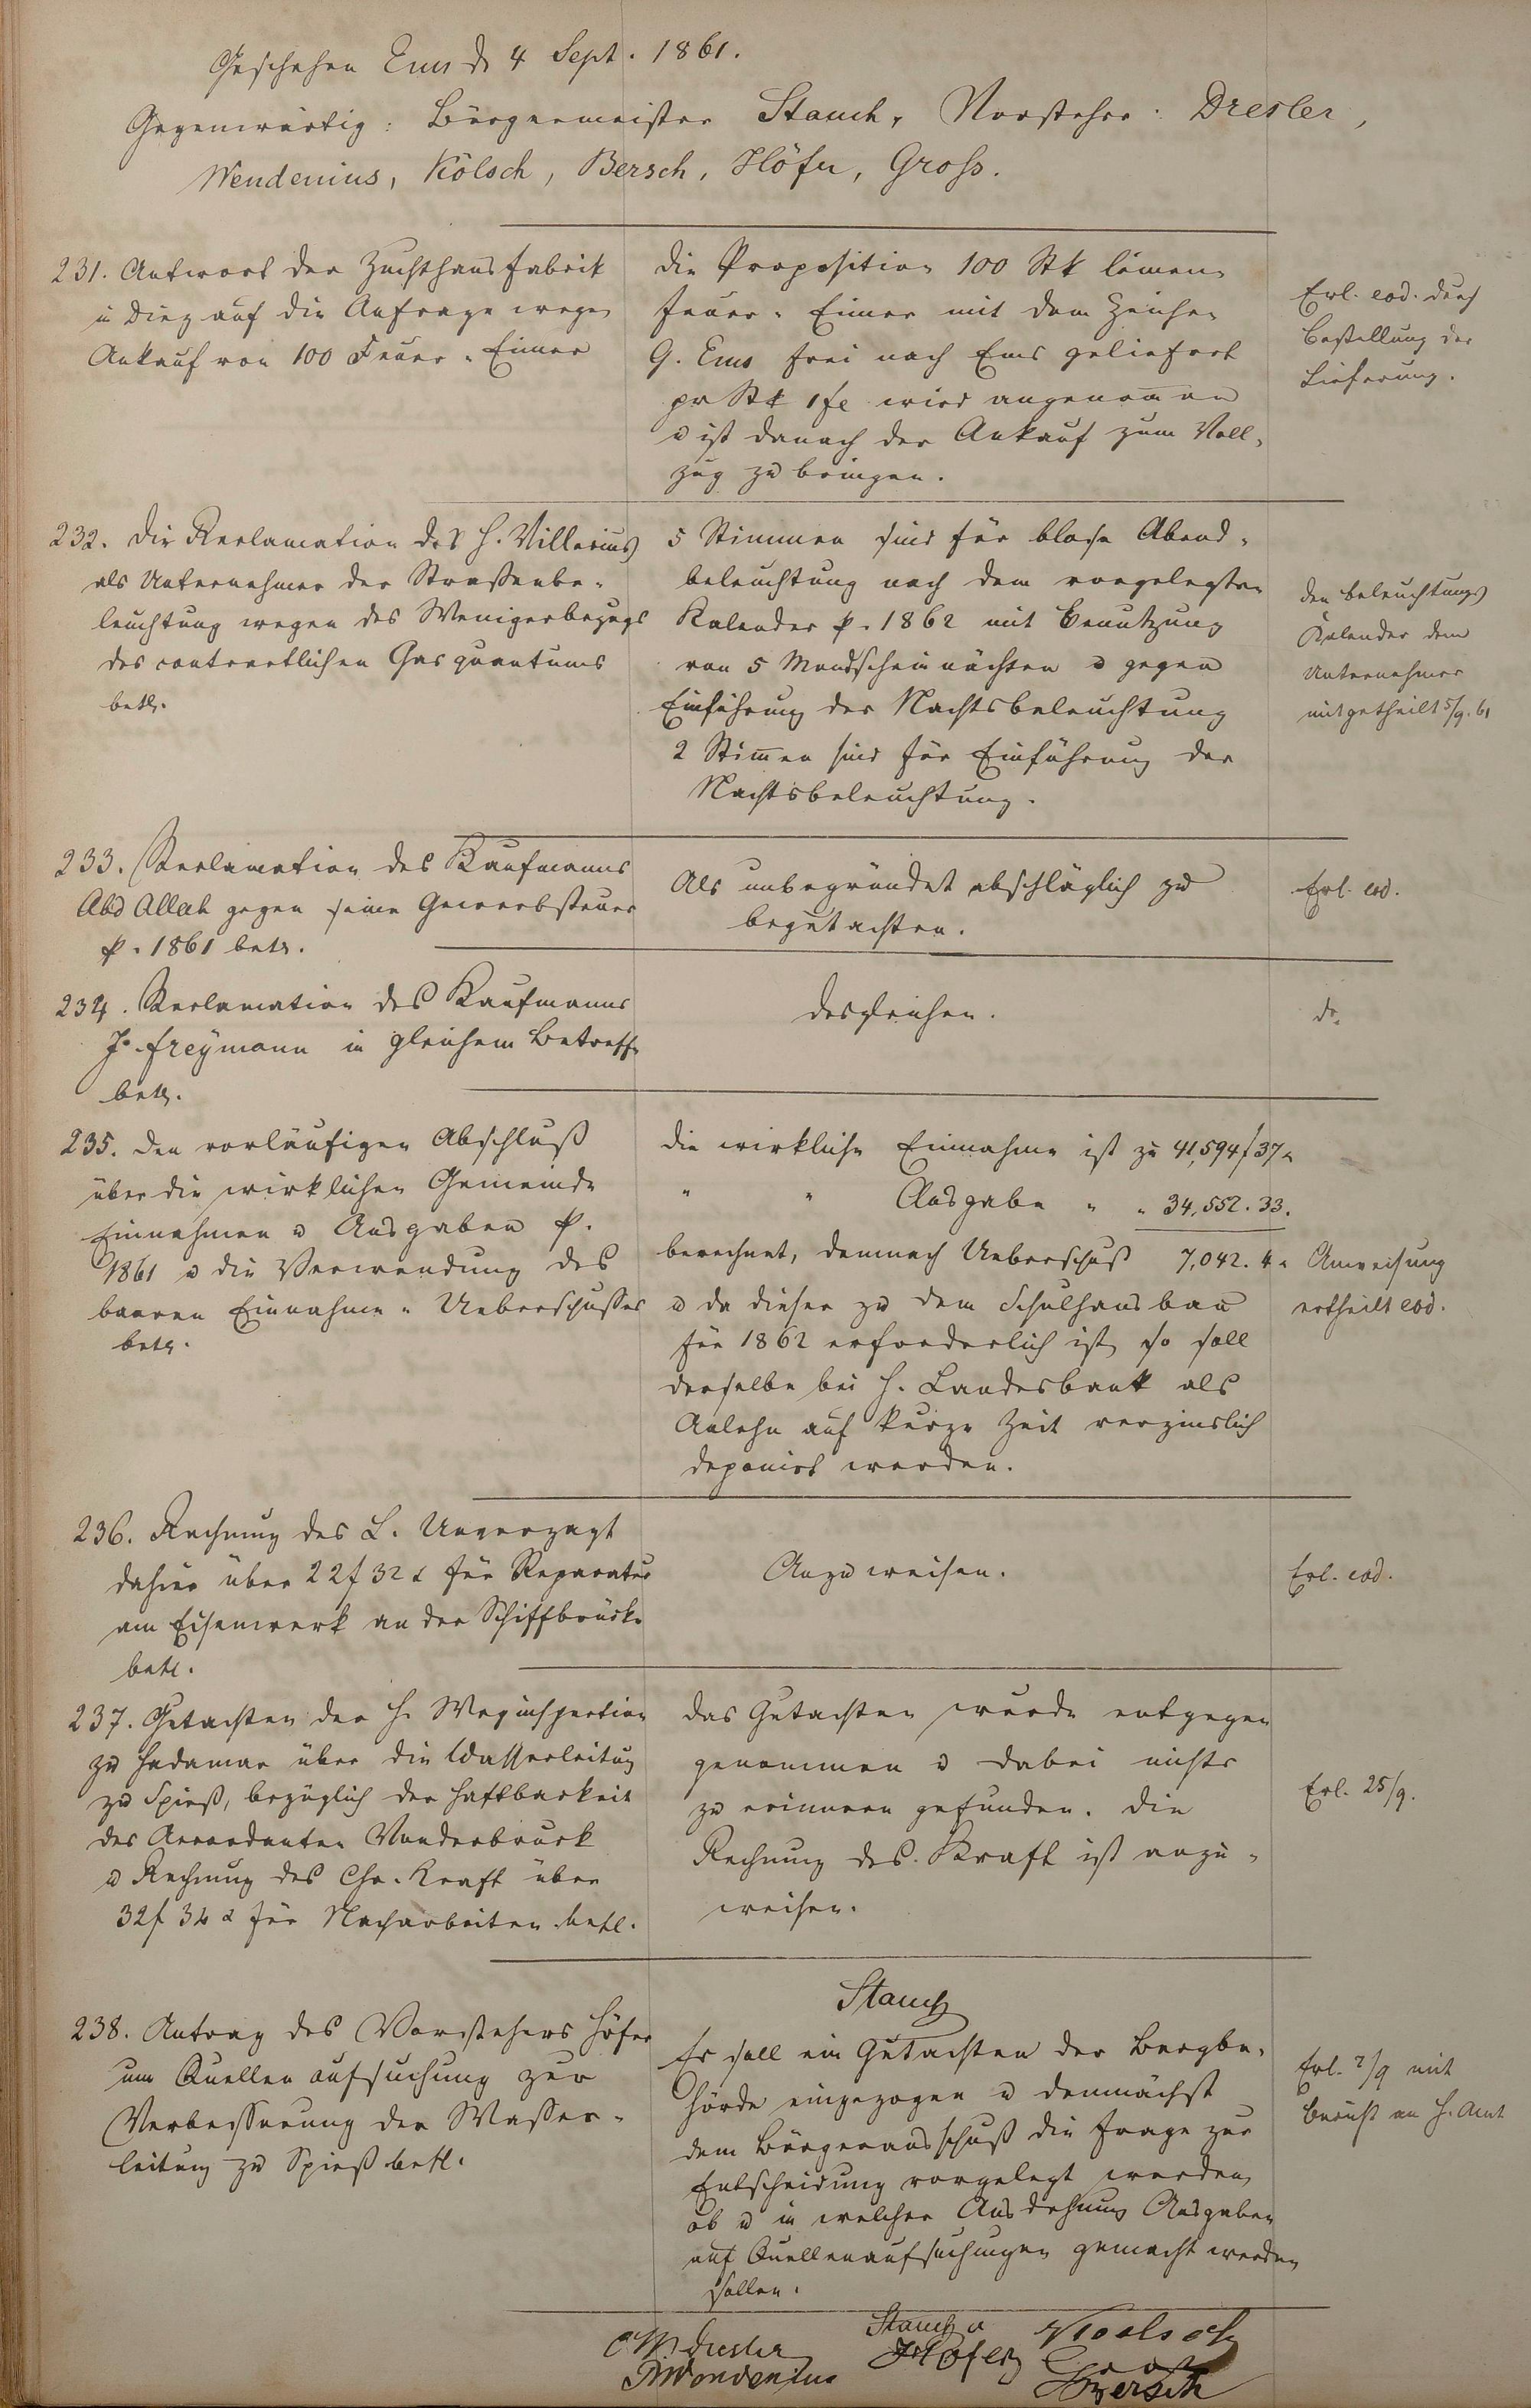 Geschehen Ems d. 4 Sept. 1861.
Gegenwärtig: Bürgermeister Stauch, Vorsteher: Dresler,
Wendenius, Kölsch, Bersch, Höfer, Gross.
231. Antwort der Zuchthausfabrik
in Diez auf die Anfrage wegen
Ankauf von 100 Feuer-Eimer
die Proposition 100 Stk leinene
Feuer-Eimer mit dem Zeichen
G. Ems frei nach Ems geliefert
pr Stk 1 fl wird angenommen
u ist danach der Ankauf zum Voll-
zug zu bringen.
Erl. eod. durch
Bestellung der
Lieferung.
232. Die Reclamation des H. Villerius
als Unternehmer der Straßenbe-
leuchtung wegen des Wenigerbezugs
des contractlichen Gasquantums
betr.
5 Stimmen sind für blose Abend-
beleuchtung nach dem vorgelegten
Kalender p. 1862 mit Benutzung
von 5 Mondscheinnächten u gegen
Einführung der Nachtsbeleuchtung
2 Stimmen sind für Einführung der
Nachtsbeleuchtung.
den Beleuchtungs
Kalender dem
Unternehmer
mitgetheilt 5/9. 61
233. Reclamation des Kaufmanns
Abd Allah gegen seine Gewerbsteuer
p. 1861 betr.
Als unbegründet abschläglich zu
begutachten.
Erl. eod.
234. Reclamation des Kaufmanns
J. Freymann in gleichem Betreffe
betr.
desgleichen.
do.
235. Den vorläufigen Abschluß
über die wirklichen Gemeinde
Einnahmen u Ausgaben p.
1861 u die Verwendung des
baaren Einnahme-Ueberschusses
betr.
die wirkliche Einnahme ist zu 41,594 f 37 x
" " Ausgabe " " 34,552. 33.
berechnet, demnach Ueberschuß 7,042. 4 x
u da dieser zu dem Schulhausbau
für 1862 erforderlich ist, so soll
derselbe bei H. Landesbank als
Anlehn auf kurze Zeit verzinslich
deponirt werden.
Anweisung
ertheilt eod.
236. Rechnung des L. Unverzagt
dahier über 22 f 32 x für Reparatur
am Eisenwerk an der Schiffbrücke
betr.
Anzuweisen.
Erl. eod.
237. Gutachten der H. Weginspection
zu Hadamar über die Wasserleitung
zu Spieß, bezüglich der Haftbarkeit
des Accordanten Vanderbruck
u Rechnung des Chr. Kraft über
32 f 34 x für Nacharbeiten betr.
das Gutachten wurde entgegen
genommen u dabei nichts
zu erinnern gefunden. Die
Rechnung des Kraft ist anzu-
weisen.
Erl. 25/9.
Stauch
238. Antrag des Vorstehers Höfer
um Quellenaufsuchung zur
Verbesserung der Wasser-
leitung zu Spieß betr.
Es soll ein Gutachten der Bergbe-
hörde eingezogen u demnächst
dem Bürgerausschuß die Frage zur
Entscheidung vorgelegt werden,
ob u in welcher Ausdehnung Ausgaben
auf Quellenaufsuchungen gemacht werden
sollen.
Erl. 7/9 mit
Bericht an H. Amt
Stauch Koelsch
Dresler Höfer Gross
Wendenius Bersch